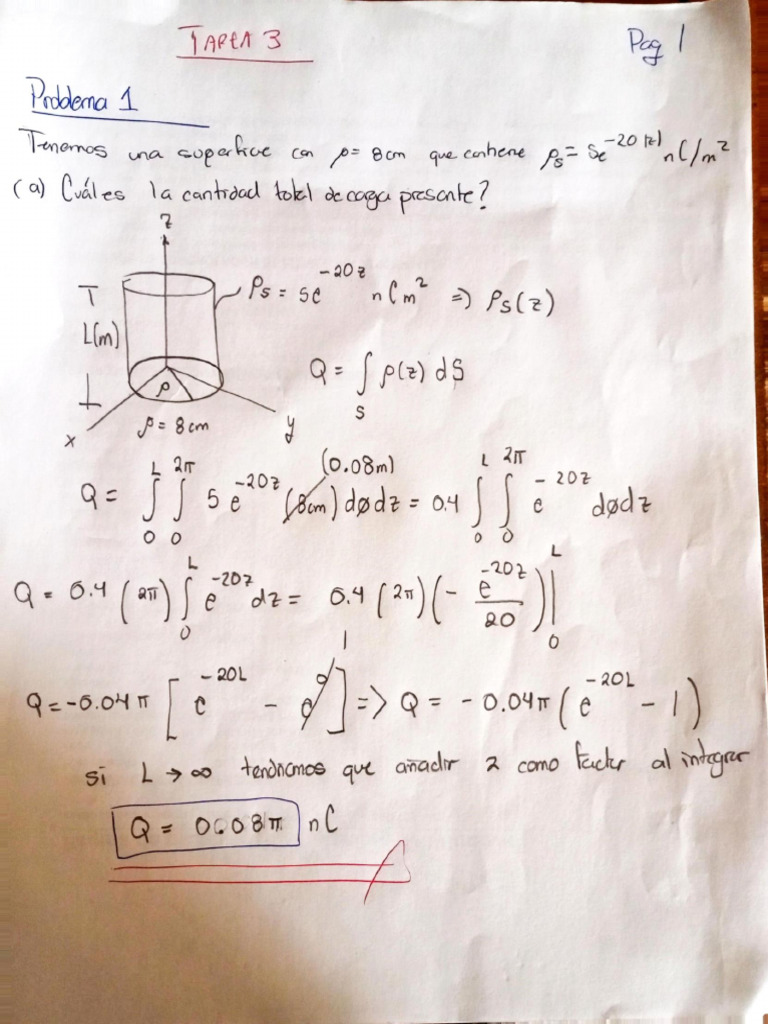 TAREA 3
Pag 1
Problema 1
Tenemos una superficie con ρ= 8cm que contiene ρs= 5e^-20|z| nC/m²
(a) Cuál es la cantidad total de carga presente?
z
ρs = 5e^-20z nC m² => ρs(z)
L(m)
Q = ∫_S ρ(z) dS
ρ
x
ρ= 8cm
y
(0.08m)
Q = ∫_0^L ∫_0^2π 5 e^-20z (8cm) dødz = 0.4 ∫_0^L ∫_0^2π e^-20z dødz
Q = 0.4 (2π) ∫_0^L e^-20z dz = 0.4 (2π) (- e^-20z / 20) |_0^L
1
Q = -0.04π [ e^-20L - e^0 ] => Q = - 0.04π (e^-20L - 1)
si L → ∞ tendriamos que añadir 2 como factor al integrar
Q = 0.08π nC